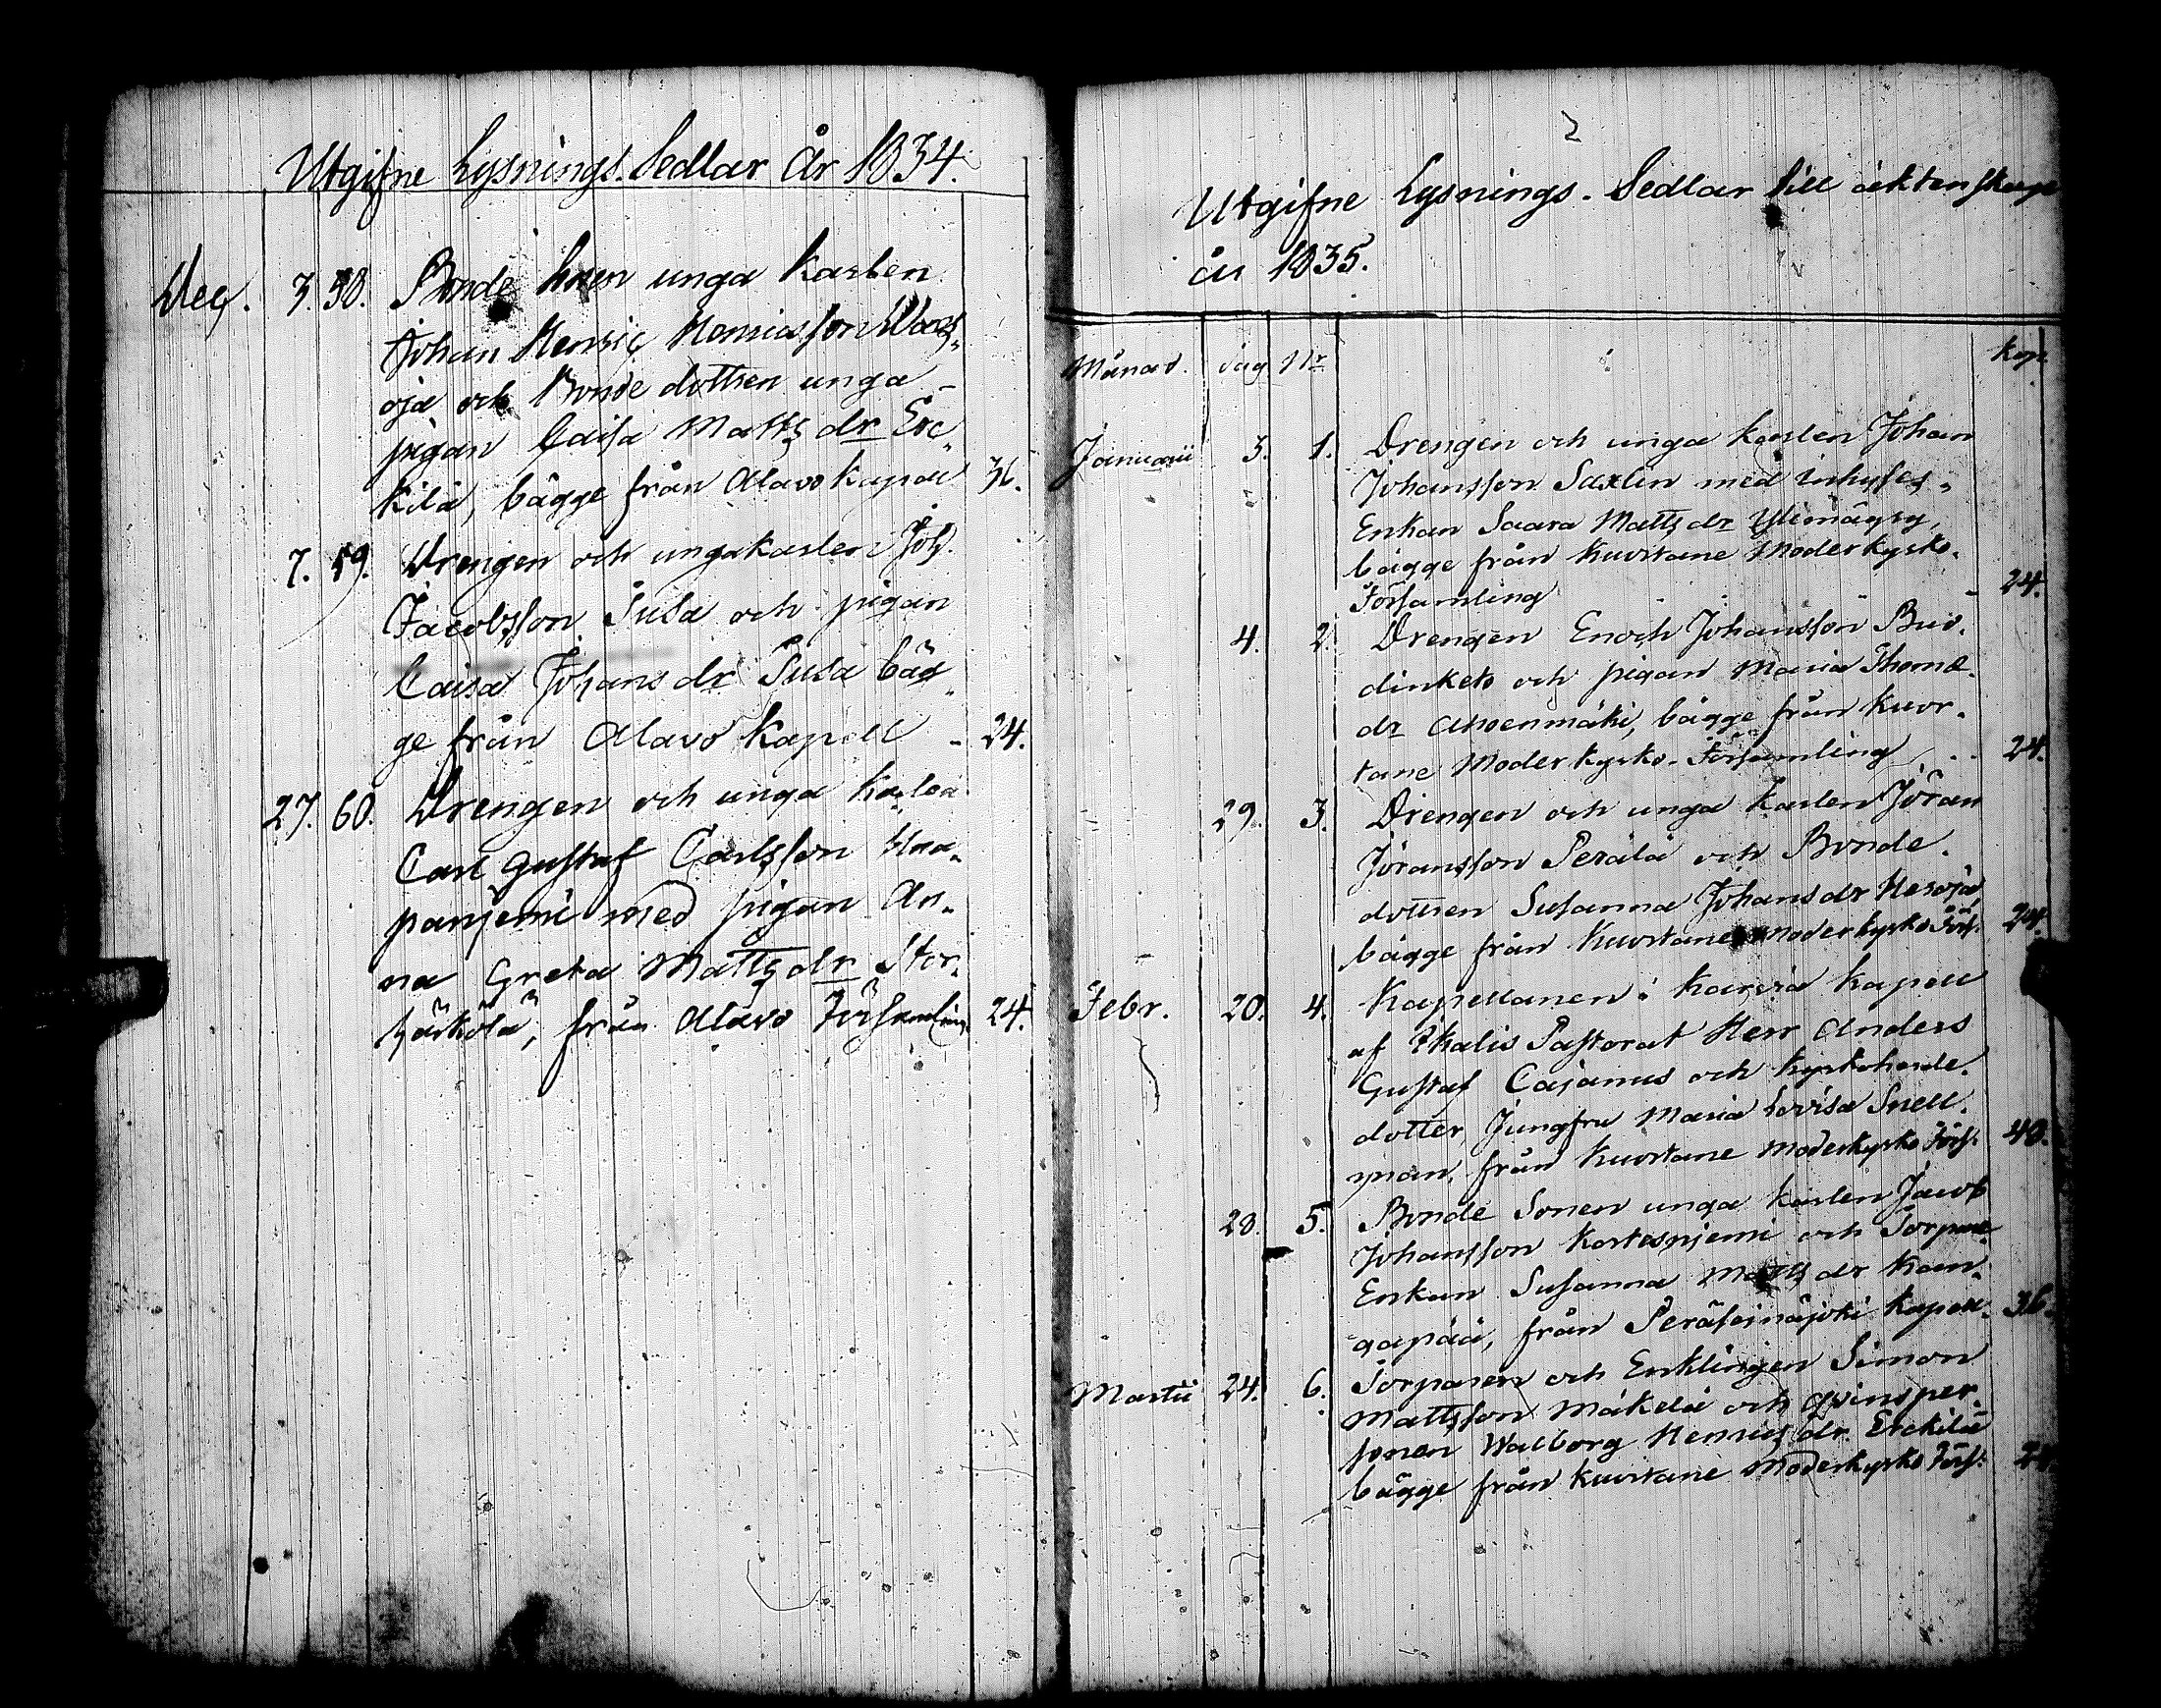 Utgifne Lysnings. Sedlar År 1834.
Dec. 3. 58. Bonde Sonen unga Karlen
Johan Henric Henricsson Wars,,
oja och Bonde dottren unga
pigan Caisa Matts dr Erc,,
kilä, bägge från Alavo kapell 36.
7. 59. Drengen och ungakarlen Joh.
Jacobsson Sula och pigan
Caisa Johans dr Sula bäg,,
ge från Alavo Kapell - 24.
27. 60. Drengen och unga Karlen
Carl Gustaf Carlsson Haa-
panjemi med pigan An-
na Greta Matts dr Stor-
härkölä, från Alavo Församling 24.
2
Utgifne Lysnings. Sedlar till äktenskap
år 1835.
Månad. dag Nr Kop.
Januarii 3. 1. Drengen och unga karlen Johan
Johansson Saxlin med Inhyses,,
Enkan Saara Matts dr Ylimäyry,
bägge från Kuortane Moderkyrko-
Församling - 24.
4. 2. Drengen Enoch Johansson Bus-
dinkets och pigan Maria Thomæ-
dr Ahvenmäki, bägge från Kuor-
tane Moderkyrko-Församling 24.
29. 3. Drengen och unga karlen Jöran
Jöransson Perälä och Bonde-
dottren Susanna Johans dr Herroja,
bägge från Kuortane Moderkyrko Förs. 24.
Febr. 20. 4. Kapellanen i Karvia kapell
af Ikalis Pastorat Herr Anders
Gustaf Cajanus och Kyrkoherde-
dotter, Jungfru Maria Lovisa Snell-
man, från Kuortane Moderkyrko Förs. 48.
28. 5. Bonde Sonen unga karlen Jacob
Johansson Kortesnjemi och Torpare
Enkan Susanna Matts dr Kan-
gapää, från Peräseinäjoki Kapell. 36.
Martii 24. 6. Torparen och Enklingen Simon
Mattsson Mäkelä och qvinsper-
sonen Walborg Henrics dr Erckilä
bägge från Kuortane Moderkyrko Förs. 24.